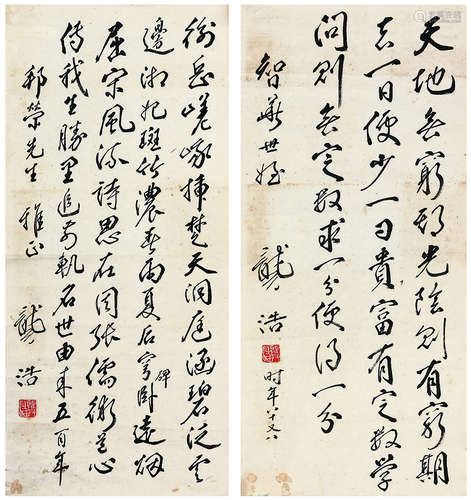 天地無窮期光陰則有窮期
去一日便少一日貴富有定數學
問則無定數求一分便得一分
智華世姪
龔浩
時年八十又八
衡岳嵯峨插楚天洞庭涵碧泛雲
邊湘妃斑竹濃春雨夏后穹碑卧遠烟
屈宋風流詩思在周張儒術道心
傳我生勝里追前軌名世由來五百年
邦榮先生 雅正
龔浩